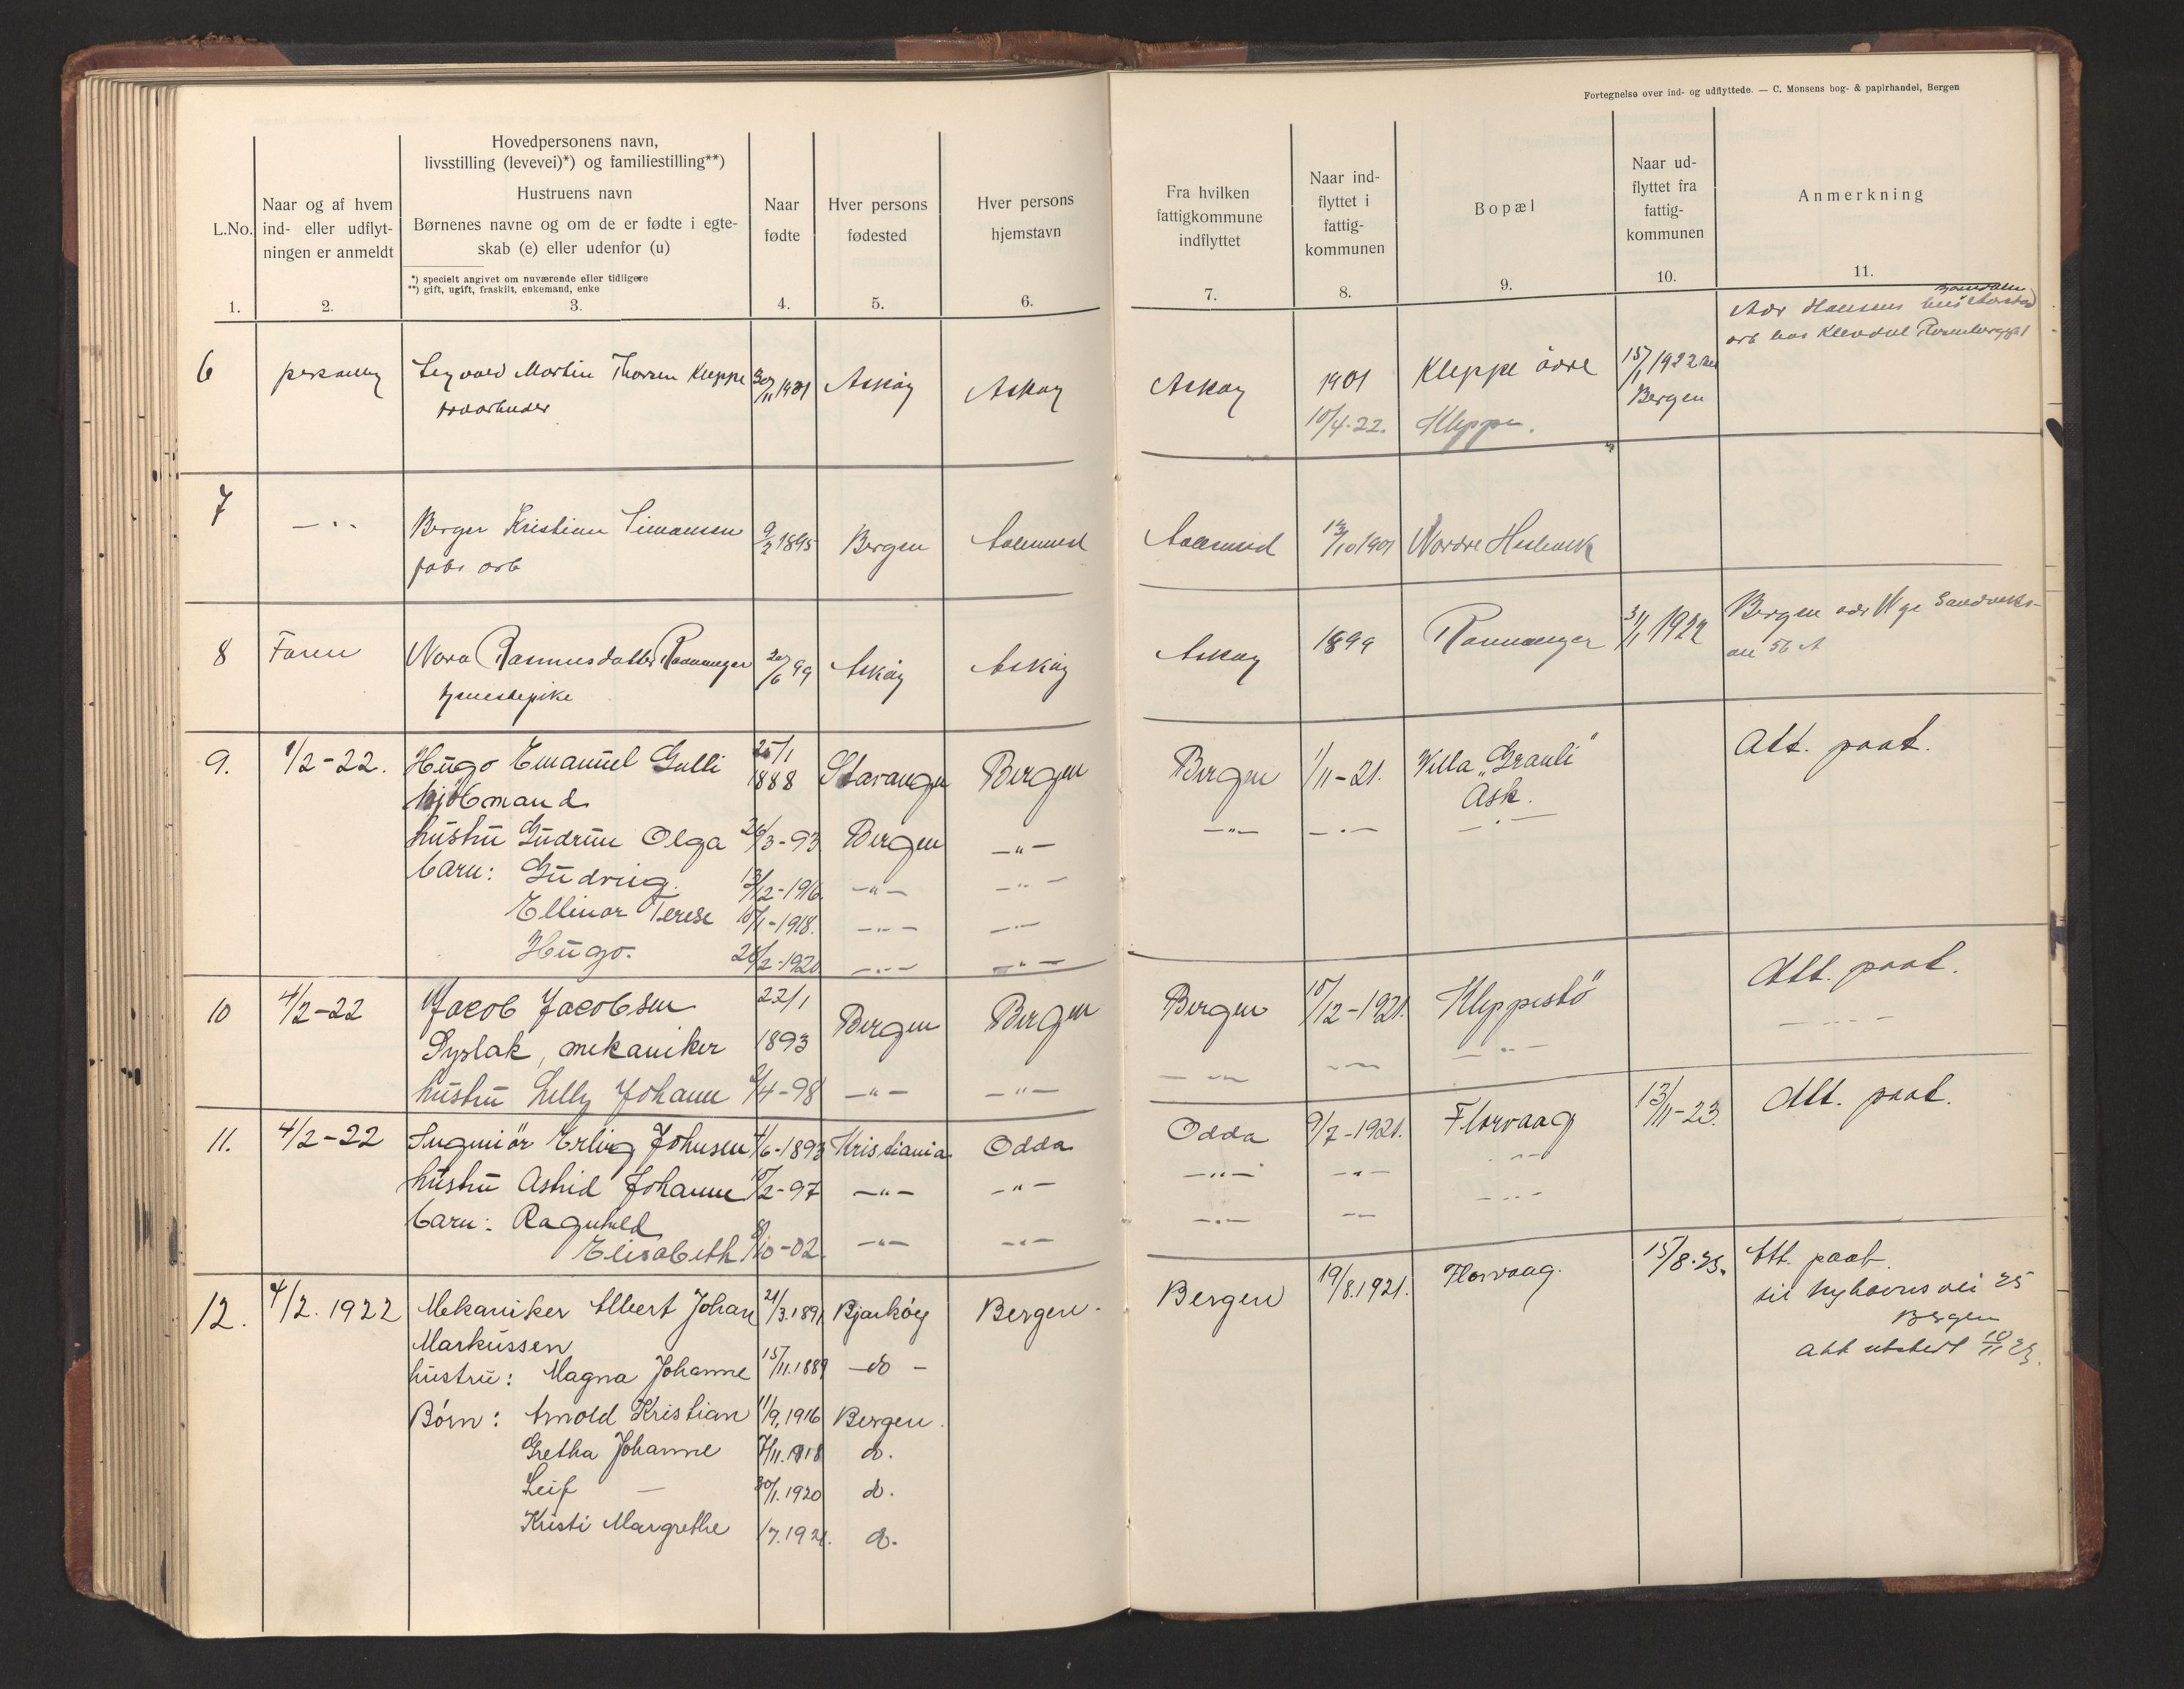 Fortegnelse over ind- og udflyttede. — C. Monsens bog- & papirhandel, Bergen
L.No.
1.
Naar og af hvem
ind- eller udflyt-
ningen er anmeldt
2.
Hovedpersonens navn,
livsstilling (levevei)*) og familiestilling**)
Hustruens navn
Børnenes navne og om de er fødte i egte-
skab (e) eller udenfor (u)
*) specielt angivet om nuværende eller tidligere
**) gift, ugift, fraskilt, enkemand, enke
3.
Naar
fødte
4.
Hver persons
fødested
5.
Hver persons
hjemstavn
6.
Fra hvilken
fattigkommune
indflyttet
7.
Naar ind-
flyttet i
fattig-
kommunen
8.
Bopæl
9.
Naar ud-
flyttet fra
fattig-
kommunen
10.
Anmerkning
11.
Adr Hansens
arb hos
6 personlig Martin Thorsen Kleppe 30/11 1901 Askøy Askøy Askøy 1901 Kleppe øvre 15/1 1922
Bergen
10/4-22. Kleppe.
7 — " Berger Kristian Simonsen 9/2 1895 Bergen Aalesund Aalesund 1901 Nordre
fabr arb
8 Faren Nora Rasmusdatter Ramnanger 20/6 99 Askøy Askøy Askøy 1899 Ramnanger 31/1 1922 Bergen adr
tjenestepike
56 A
9. 1/2-22. Hugo Emanuel Gulli 25/1 1888 Stavanger Bergen Bergen 1/11-21. Villa „Granli" Att. paat.
kjøbmand Ask.
hustru Gudrun Olga 26/3-93 Bergen —"— —"— —"— —"—
barn: 13/12-1916 —"— —"—
Ellinor Terese 15/1-1918. —"— —"—
Hugo. 2-1920 —"— —"—
10 4/2-22 Jacob Jacobsen 22/1 Bergen Bergen Bergen 10/12-1921. Kleppestø Att. paat.
mekaniker 1893
hustru Lilly Johanne 4-98 —"— —"— —"— —"— —"— —"—
11. 4/2-22 Ingeniør Erling Johnsen 6-1893 Kristiania Odda Odda 9/7-1921. Florvaag 13/11-23. Att. paat.
hustru Astrid Johanne 2-97 —"— —"— —"— —"— —"—
barn: Ragnhild
Elisabeth 10-02. —"— —"— —"— —"— —"—
12. 4/2. 1922 Mekaniker Albert Johan 21/3.1891 Bjarkøy Bergen. Bergen 19/8.1921. Florvaag. 15/8.23. Att. paat.
Markussen
til Nyhavns vei 25
Bergen
hustru: Magna Johanne 15/11.1889 —do—
Att utstedt 10/11 23.
Børn: Arnold Kristian 11/9.1916 Bergen.
Gretha Johanne 7/11.1918 do.
Leif — 30/1.1920 do.
Kristi Margrethe 1/7.1921. do.